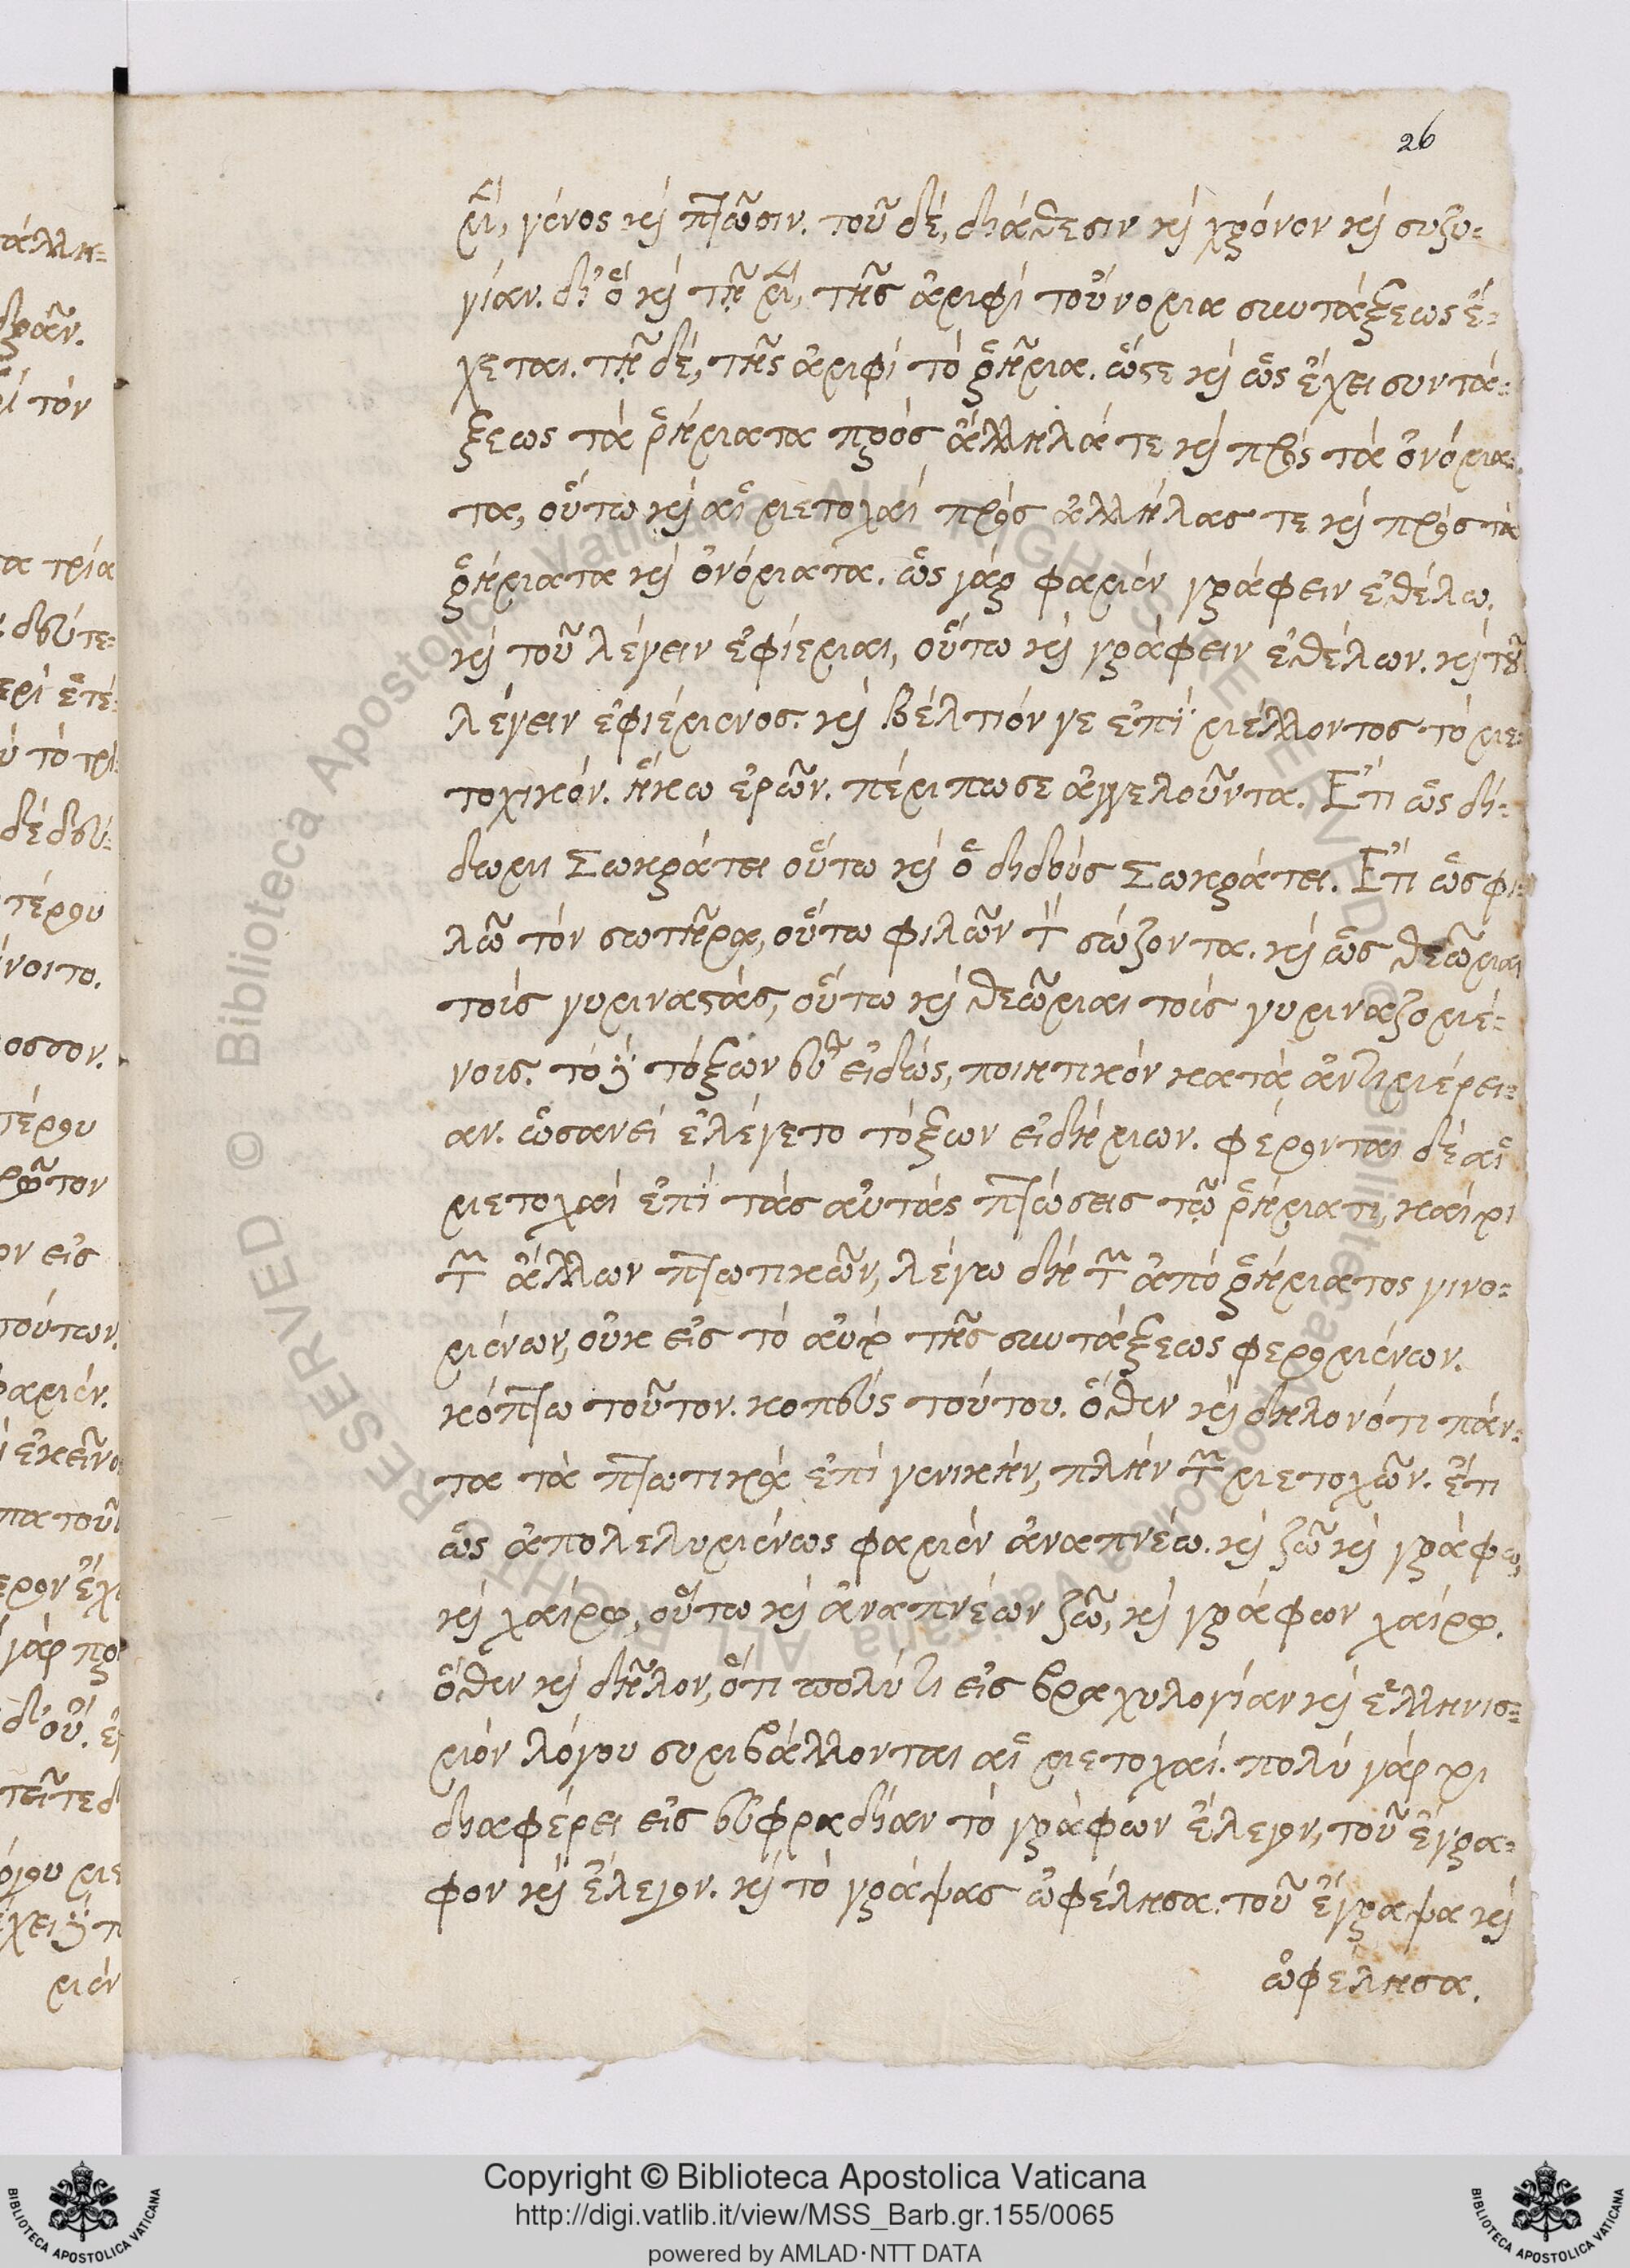 26
μὲν, γένος καὶ πτῶσιν. τοῦ δὲ, διάθεσιν καὶ χρόνον καὶ συζυ-
γίαν. δι' ὃ καὶ τῇ μὲν, τῆς ἀμφὶ τοὔνομα συντάξεως ἔ-
χεται. τῇ δὲ, τῆς ἀμφὶ τὸ ῥῆμα. ὥστε καὶ ὡς ἔχει συντά-
ξεως τὰ ῥήματα πρὸς ἄλληλά τε καὶ πρὸς τὰ ὀνόμα-
τα, οὕτω καὶ αἱ μετοχαὶ πρὸς ἀλλήλας τε καὶ πρὸς τὰ
ῥήματα καὶ ὀνόματα. ὡς γάρ φαμεν γράφειν ἐθέλω.
καὶ τοῦ λέγειν ἐφίεμαι, οὕτω καὶ γράφειν ἐθέλων. καὶ τοῦ
λέγειν ἐφιέμενος. καὶ βέλτιόν γε ἐπὶ μέλλοντος τὸ με-
τοχικόν. ἥκω ἐρῶν. πέμπω σε ἀγγελοῦντα. Ἔτι ὡς δί-
δωμι Σωκράτει οὕτω καὶ ὁ διδοὺς Σωκράτει. Ἔτι ὡς φι-
λῶ τὸν σωτῆρα, οὕτω φιλῶν τὸν σώζοντα. καὶ ὡς θεῶμαι
τοὺς γυμναστὰς, οὕτω καὶ θεῶμαι τοὺς γυμναζομέ-
νους. τὸ γὰρ τόξων εὖ εἰδὼς, ποιητικὸν κατὰ ἀντιμέρει-
αν. ὡσανεὶ ἐλέγετο τόξων εἰδήμων. φέρονται δὲ αἱ
μετοχαὶ ἐπὶ τὰς αὐτὰς πτώσεις τῷ ῥήματι, καίτοι
τῶν ἄλλων πτωτικῶν, λέγω δὴ τῶν ἀπὸ ῥήματος γινο-
μένων, οὐκ εἰς τὸ αὐτὸ τῆς συντάξεως φερομένων.
κόπτω τοῦτον. κοπεὺς τούτου. ὅθεν καὶ δηλονότι πάν-
τα τὰ πτωτικὰ ἐπὶ γενικὴν, πλὴν τῶν μετοχῶν. ἔτι
ὡς ἀπολελυμένως φαμὲν ἀναπνέω. καὶ ζῶ καὶ γράφω,
καὶ χαίρω, οὕτω καὶ ἀναπνέων ζῶ, καὶ γράφων χαίρω.
ὅθεν καὶ δῆλον, ὅτι πολύ τι εἰς βραχυλογίαν καὶ ἑλληνισ-
μὸν λόγου συμβάλλονται αἱ μετοχαί. πολὺ γάρ τοι
διαφέρει εἰς εὐφραδίαν τὸ γράφων ἔλεγον, τοῦ ἔγρα-
φον καὶ ἔλεγον. καὶ τὸ γράψας ὠφέλησα. τοῦ ἔγραψα καὶ
ὠφέλησα.
Copyright © Biblioteca Apostolica Vaticana
http://digi.vatlib.it/view/MSS_Barb.gr.155/0065
powered by AMLAD·NTT DATA